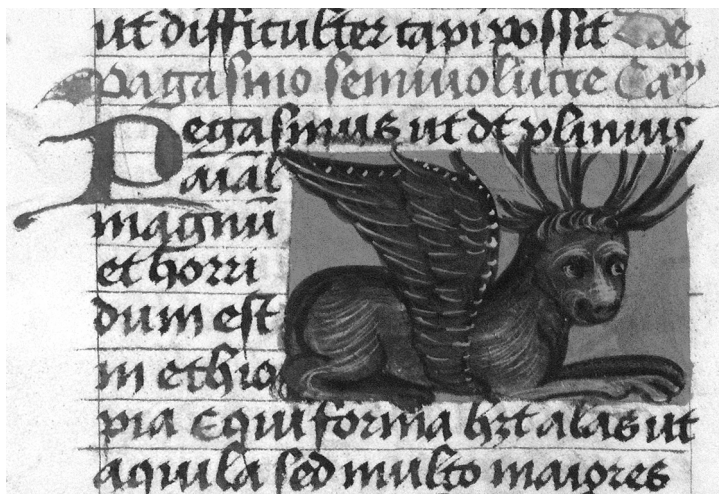 ut difficulter capi possit De
Pagasmo semivolucre Cam
Pegasmus ut dt plinius
aīal
magnū
et horri
dum est
in ethio
pia Equi forma hzt alas ut
aquila sed multo maiores